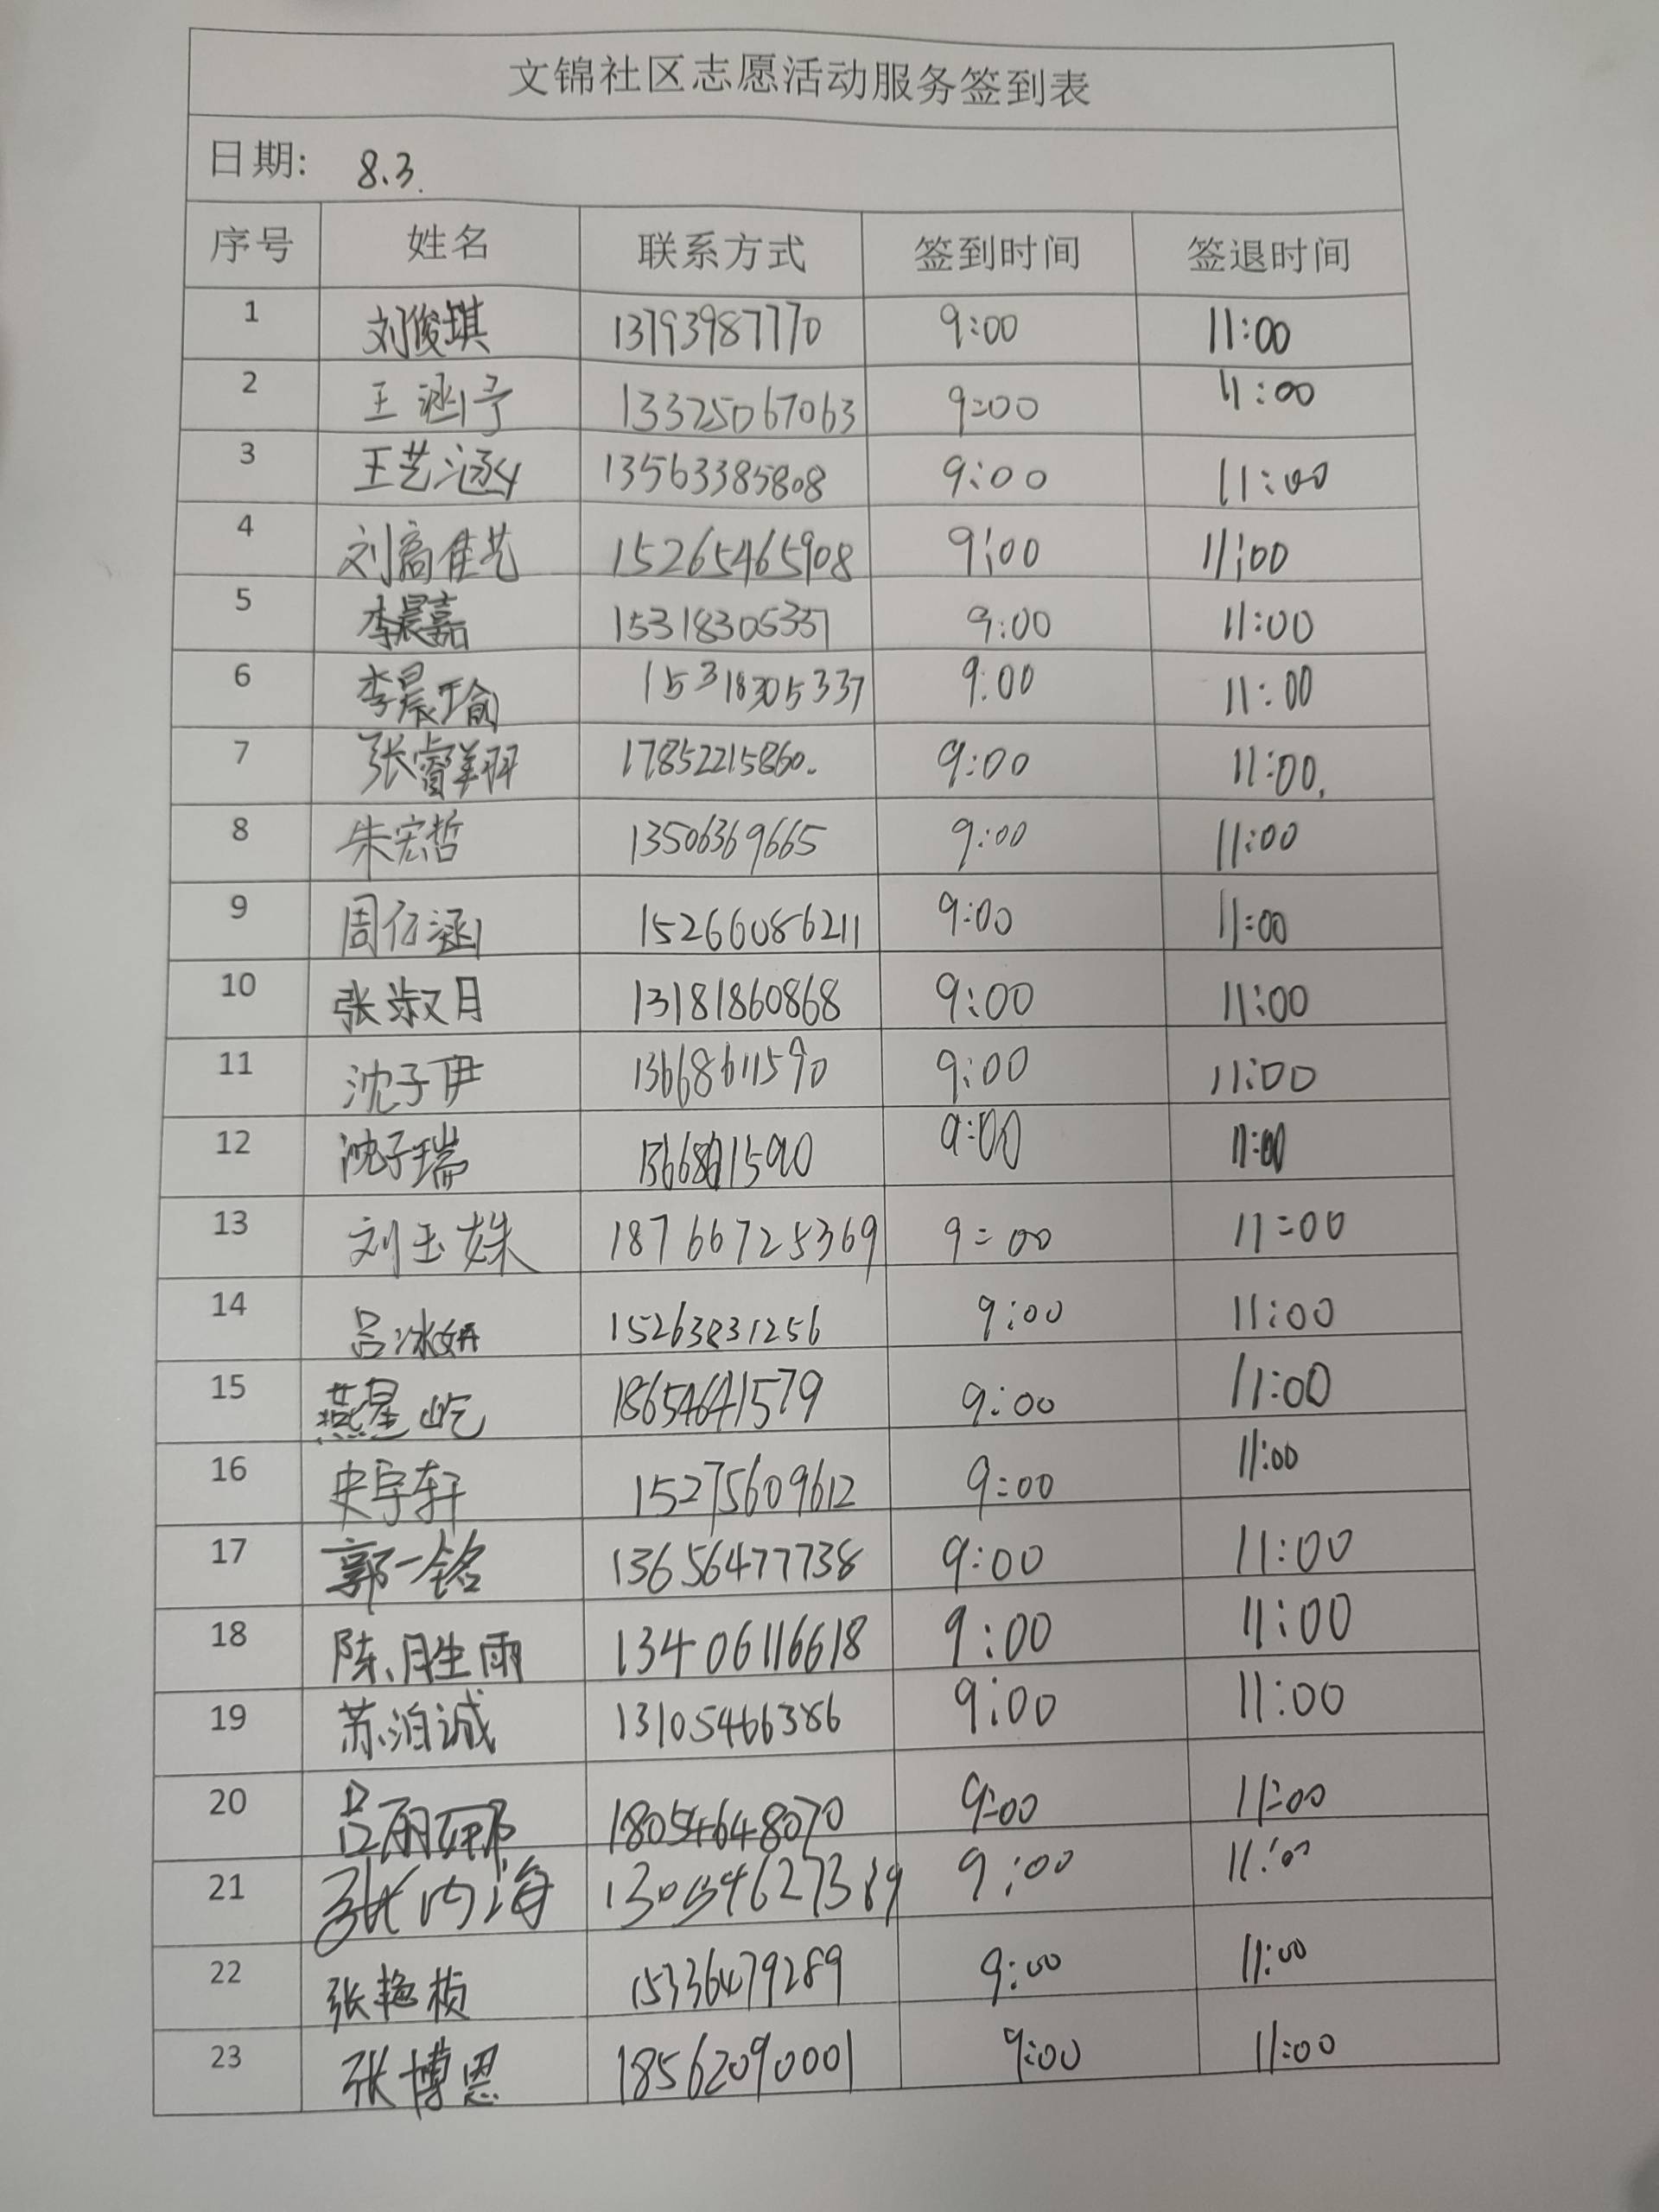 文锦社区志愿活动服务签到表
日期: 8.3.
序号 姓名 联系方式 签到时间 签退时间
1 刘俊琪 13793987770 9:00 11:00
2 王涵予 13325067063 9:00 11:00
3 王艺涵 13563385808 9:00 11:00
4 刘高佳艺 15265465908 9:00 11:00
5 李晨嘉 15318305337 9:00 11:00
6 李晨瑜 15318305337 9:00 11:00
7 张睿翔 17852215860. 9:00 11:00.
8 朱宏哲 13506369665 9:00 11:00
9 周亿涵 15266086211 9:00 11:00
10 张淑月 13181860868 9:00 11:00
11 沈子伊 13668611590 9:00 11:00
12 沈子瑞 13668611590 9:00 11:00
13 刘玉姝 18766725369 9:00 11:00
14 吕冰妍 15263831256 9:00 11:00
15 燕星屹 18654641579 9:00 11:00
16 史宇轩 15275609612 9:00 11:00
17 郭一铭 13656477738 9:00 11:00
18 陈胜雨 13406116618 9:00 11:00
19 苏泊诚 13105466386 9:00 11:00
20 吕雨娜 18054648070 9:00 11:00
21 张内海 9:00 11:00
22 张艳桢 15336479289 9:00 11:00
23 张博恩 18562090001 9:00 11:00